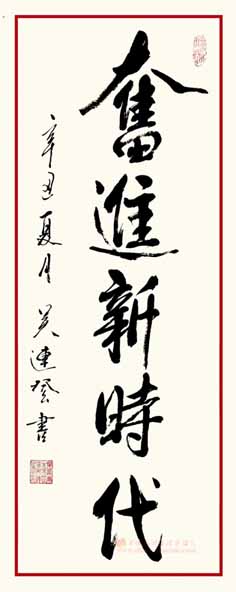 奮進新時代
辛丑夏月 連 書